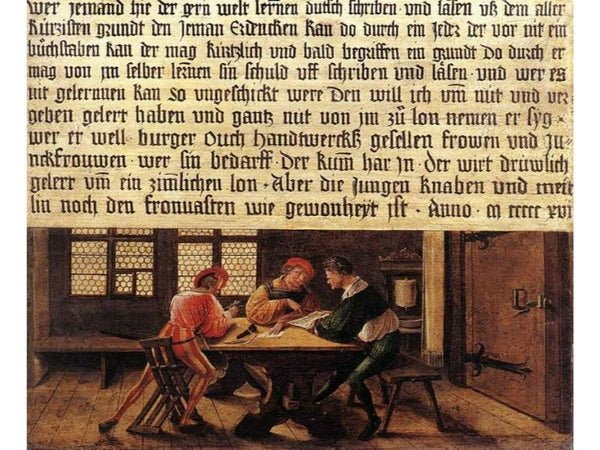 wer jemand hie der gern welt lernnen dütsch schriben und läsen uß dem aller
kürzisten grundt den jeman Erdencken kan do durch ein jeder der vor nit ein
büchstaben kan der mag kürtzlich und bald begriffen ein grundt do durch er
mag von jm selber lernnen sin schuld uff schriben und läsen · und wer es
nit gelernnen kan so ungeschickt were Den will ich um nüt und ver
geben gelert haben und gantz nüt von jm zů lon nemen er syg
wer er well · burger Ouch handtwerckß gesellen frowen und ju
nckfrouwen · wer sin bedarff · Der kum har jn · Der wirt drüwlich
gelert um ein zimlichen lon · Aber die jungen knaben und meit
lin noch den fronuasten wie gewonheyt ist · Anno · m ccccc xvi